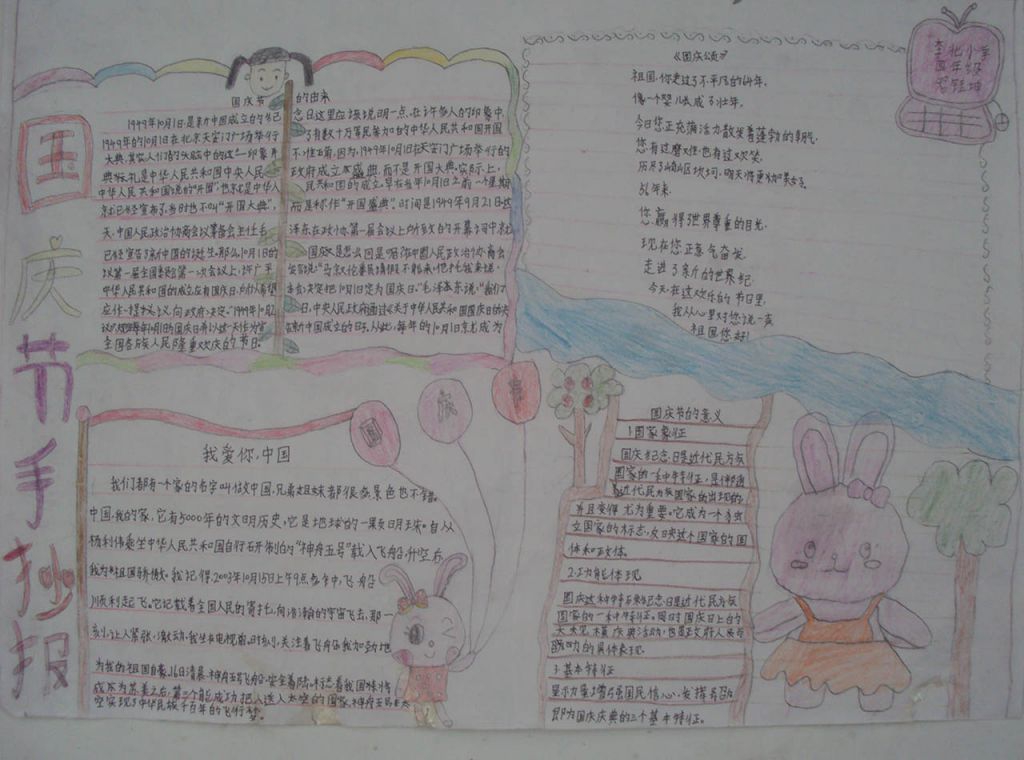 国庆节手抄报
国庆节的由来
1949年10月1日是新中国成立的
1949年的10月1日在北京天安门广场举行
大典,其实,人们的头脑中的这一印象并
典礼是中华人民共和国中央人民
中华人民共和国的"开国"
就已经宣布了,当时也不叫"开国大典",
天,中国人民政治协商会议筹备会主任毛
已经宣告了新中国的诞生。那么10月1日的
议第一届全国委员会第一次会议上,许广平
中华人民共和国的成立应有国庆日,
全国各族人民隆重欢庆的节日。
念日,这里应该说明一点,在许多人的印象中,
了有数十万军民参加的中华人民共和国开国
不准确,因为,1949年10月1日在天安门广场举行的
政府成立盛典,而不是开国大典。实际上,
民共和国的成立,早在当年10月1日之前一个星期
而是称作"开国盛典"。时间是1949年9月21日。这
泽东在政协第一届会议上所致的开幕词中就
国庆又是怎么回事呢?在中国人民政治协商会
会,决定把10月1日定为国庆日。"毛泽东说,"我们
日,中央人民政府通过《关于中华人民共和国国庆日的决
新中国成立的日子。从此,每年的10月1日就成为
《国庆颂》
祖国,你走过了不平凡的64年,
像一个婴儿长成了壮年,
今日您正充满活力散发着蓬勃的朝气,
您有过磨难也有过欢笑,
您赢得了世界尊重的目光,
现在您正意气奋发
走进了新的世界纪
今天,在这欢乐的节日里,
我从心里对您说一声
祖国您好!
李北小学
四年级
国
庆
节
我爱你,中国
我们都有一个家的名字叫做中国,兄弟姐妹都很多景色也不错。
中国,我的家,它有5000年的文明历史,它是地球的一颗明珠。自从
杨利伟乘坐中华人民共和国自行研制的"神舟五号"载人飞船升空后,
我为祖国骄傲。我记得,2003年10月15日上午9点多中,飞船
顺利起飞。它记载着全国人民的寄托,向浩瀚的宇宙飞去,那一
刻,让人紧张、激动,我坐在电视前,时刻关注着飞船,我加劲地
为我的祖国自豪,16日清晨,神舟五号飞船安全着陆,标志着我国
空实现了中华民族千百年的飞行梦。
国庆节的意义
1.国家象征
国庆纪念日是近代民族
国家的一种特征,是伴随
着近代民族国家的出现的
并且变得尤为重要。它成为一个独
立国家的标志,反映这个国家的国
体和政体。
2.功能体现
国庆这种特殊纪念日是近代民族
国家的一种特征。同时国庆日上的
大规模庆典活动,也是政府人民
的具体表现。
3.基本特征
显示力量、增强国民信心,发挥号召
即为国庆庆典的三个基本特征。